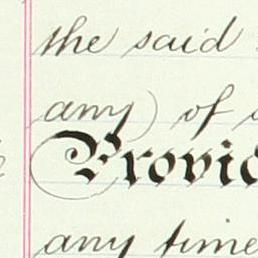 the said
any) of
Provid
any time